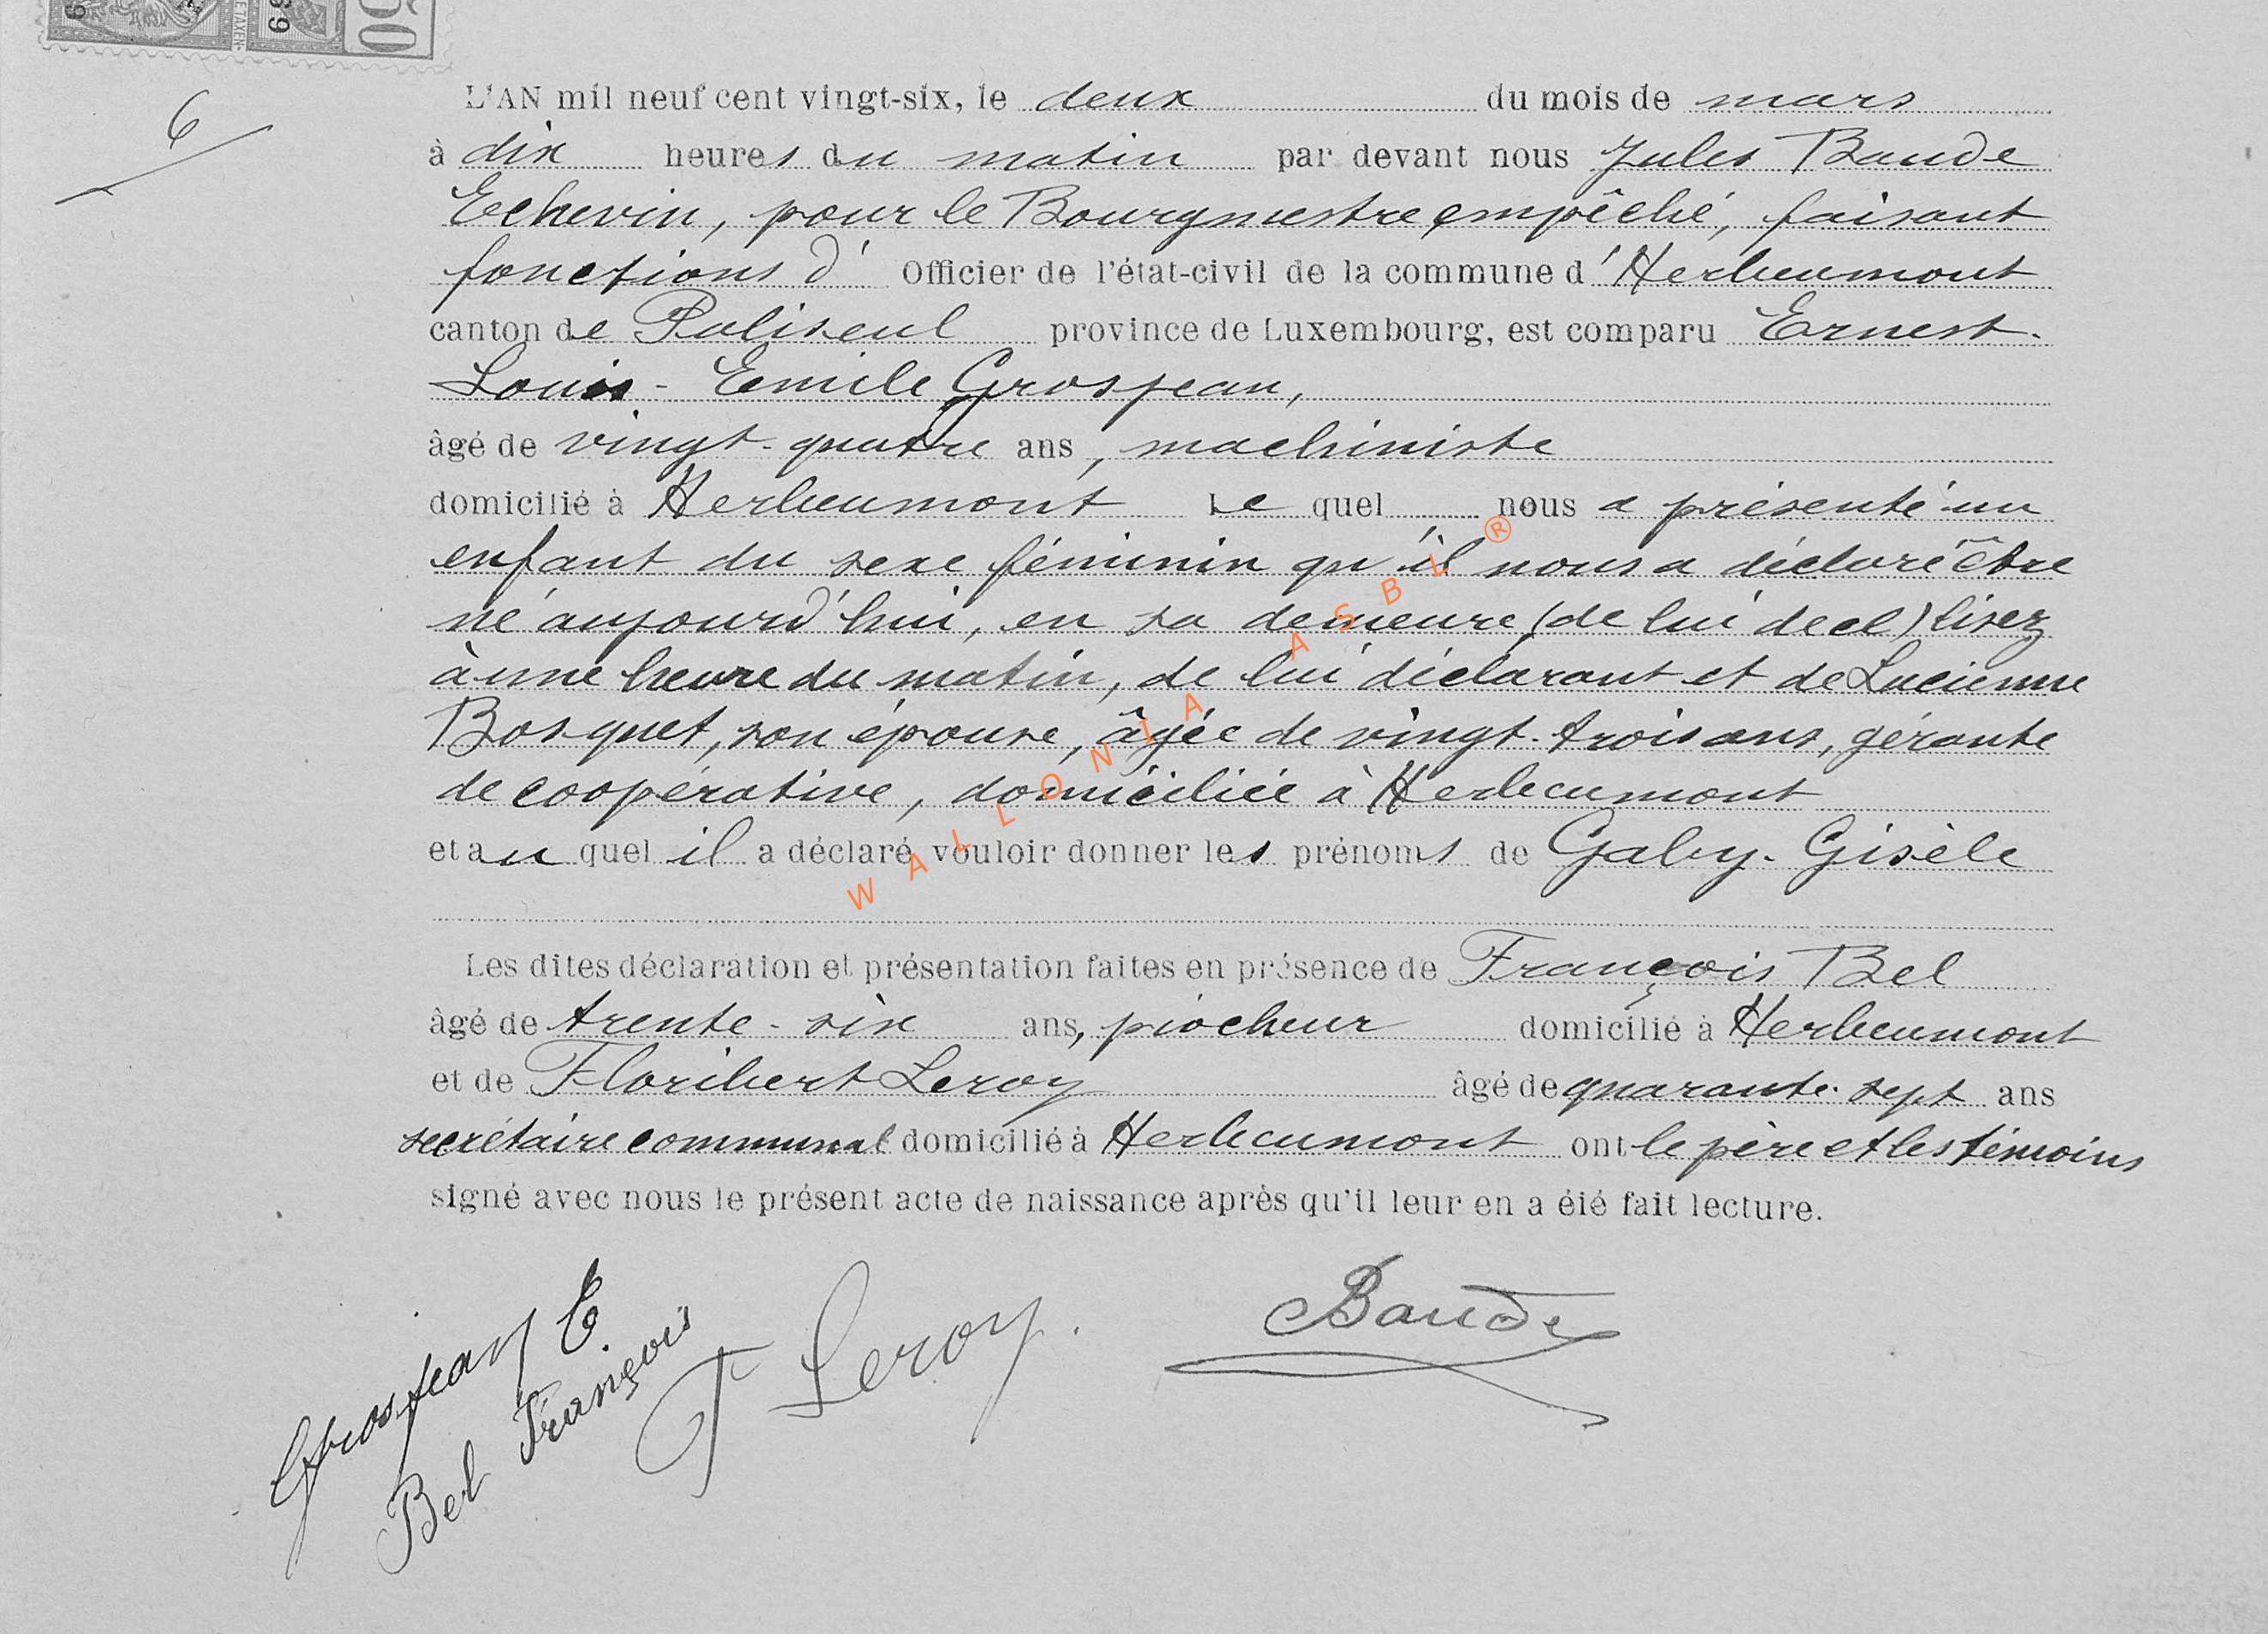 50
6
L'AN mil neuf cent vingt-six, le deux du mois de mars
à dix heures du matin par devant nous Jules Baude
Echevin, pour le Bourgmestre empêché, faisant
fonctions d' Officier de l'état-civil de la commune d'Herbeumont
canton de Paliseul province de Luxembourg, est comparu Ernest-
Louis - Emile Grosjean,
âgé de vingt-quatre ans, machiniste
domicilié à Herbeumont Le quel nous a présenté un
enfant du sexe féminin qu'il nous a déclaré être
né aujourd'hui, en sa demeure (de lui decl) lisez
à une heure du matin, de lui déclarant et de Lucienne
Bosquet, son épouse, âgée de vingt-trois ans, gérante
de coopérative, domiciliée à Herbeumont
et au quel il a déclaré vouloir donner les prénoms de Gaby-Gisèle
Les dites déclaration et présentation faites en présence de François Bel
âgé de trente-six ans, piocheur domicilié à Herbeumont
et de Floribert Leroy âgé de quarante-sept ans
secrétaire communal domicilié à Herbeumont ont le père et les témoins
signé avec nous le présent acte de naissance après qu'il leur en a été fait lecture.
Grosjean E.
Bel François
F Leroy.
Baude
WALLONIA ASBL ®